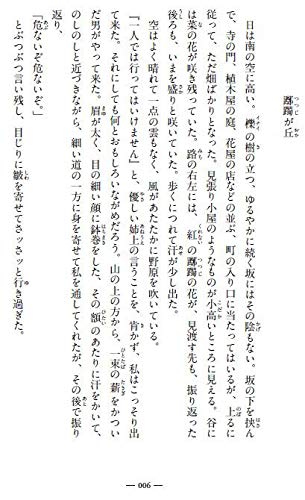 躑躅が丘
日は南の空に高い。樸の樹の立つ、ゆるやかに続く坂にはその陰もない。坂の下を挟ん
で、寺の門、植木屋の庭、花屋の店などの並ぶ、町の入り口に当たってはいるが、上るに
従って、ただ畑ばかりとなった。見張り小屋のようなものが小高いところに見える。谷に
は菜の花が咲き残っていた。路の右左には、紅の躑躅の花が、見渡す先も、振り返った
後ろも、いまを盛りと咲いていた。歩くにつれて汗が少し出た。
空はよく晴れて一点の雲もなく、風があたたかに野原を吹いている。
「一人では行ってはいけません」と、優しい姉上の言うことを、肯かず、私はこっそり出
て来た。それにしても何とおもしろいながめだろう。山の上の方から、一束の薪をかつい
だ男がやって来た。眉が太く、目の細い顔に鉢巻をした、その額のあたりに汗をかいて、
のしのしと近づきながら、細い道の一方に身を寄せて私を通してくれたが、その後で振り
返り、
「危ないぞ危ないぞ。」
とぶつぶつ言い残し、目じりに皺を寄せてさッさッと行き過ぎた。
― 006 ―